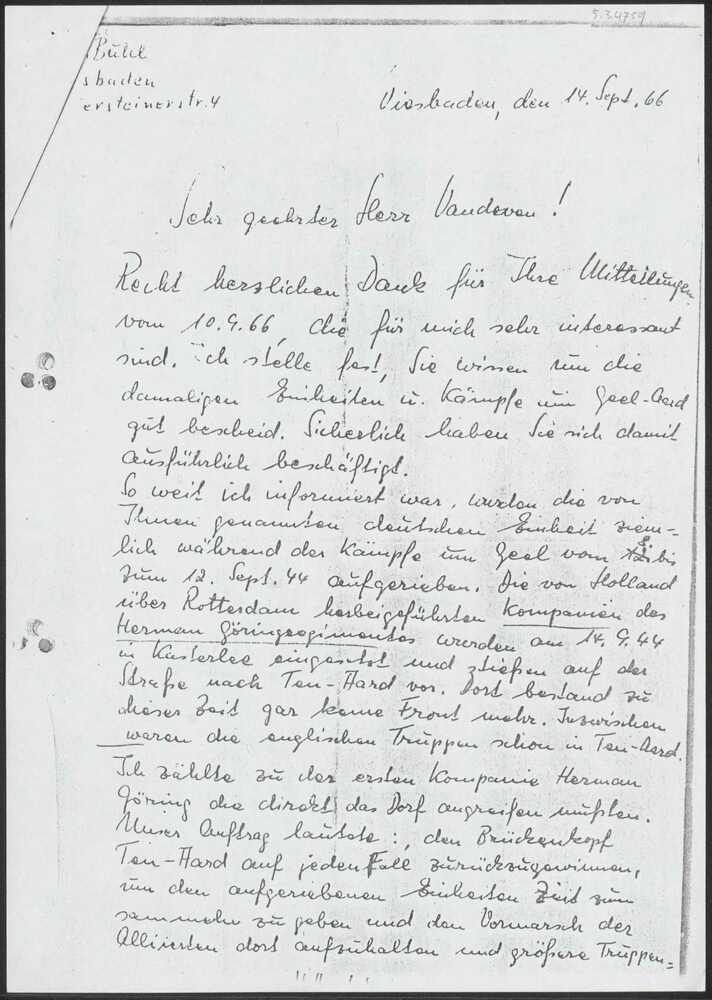 5.3.4759
Bühl
sbaden
ersteinerstr. 4
Wiesbaden, den 14. Sept. 66
Sehr geehrter Herr Vandeven!
Recht herzlichen Dank für Ihre Mitteilungen
vom 10.9.66, die für mich sehr interessant
sind. Ich stelle fest, Sie wissen um die
damaligen Einheiten u. Kämpfe um Geel-Aerd
gut bescheid. Sicherlich haben Sie sich damit
ausführlich beschäftigt.
So weit ich informiert war, wurden die von
Ihnen genannten deutschen Einheit ziem-
lich während der Kämpfe um Geel vom 8. bis
zum 12. Sept. 44 aufgerieben. Die von Holland
über Rotterdam herbeigeführten Kompanien des
Herman Göringregimentes wurden am 14.9.44
in Kasterlee eingesetzt und stießen auf der
Straße nach Ten-Hard vor. Dort bestand zu
dieser Zeit gar keine Front mehr. Inzwischen
waren die englischen Truppen schon in Ten-Aerd.
Ich zählte zu der ersten Kompanie Herman
Göring die direkt das Dorf angreifen mußten.
Unser Auftrag lautete: den Brückenkopf
Ten-Hard auf jeden Fall zurückzugewinnen,
um den aufgeriebenen Einheiten Zeit zum
sammeln zu geben und den Vormarsch der
Alliierten dort aufzuhalten und größere Truppen=